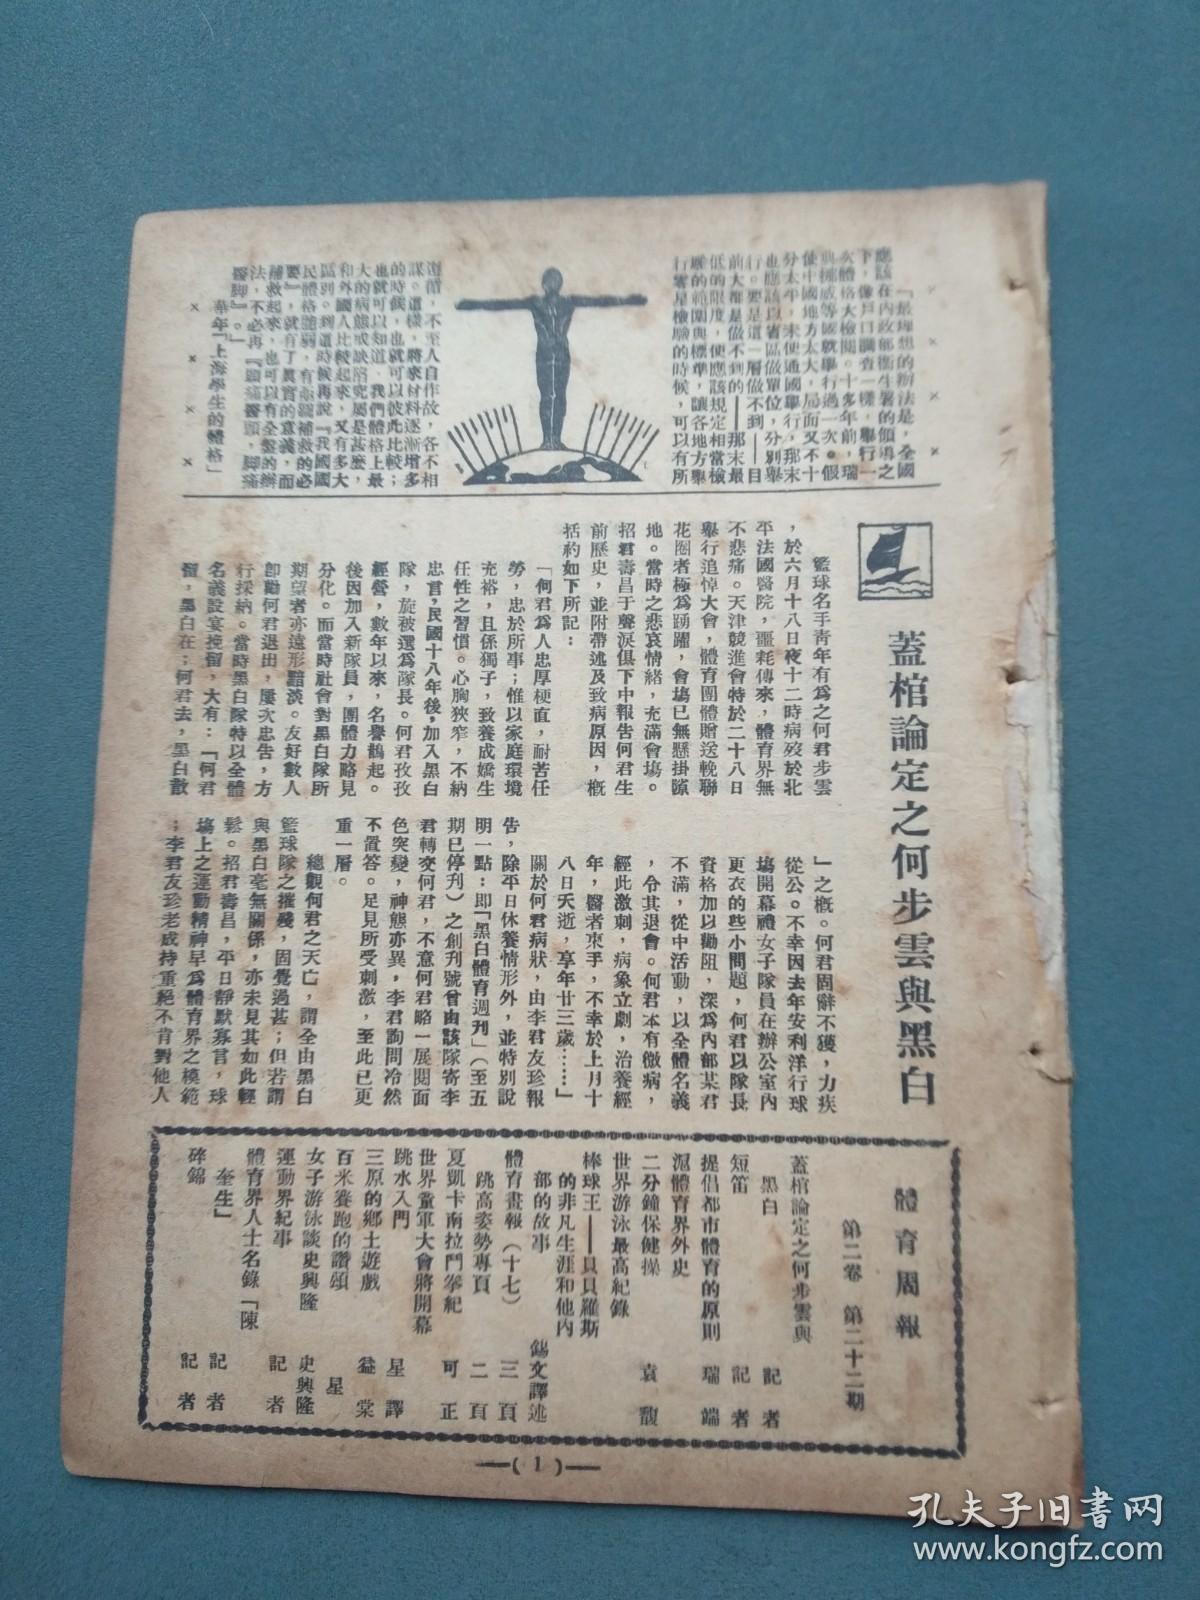 「最理想的辦法是，全國
應該在內政部衞生署的領導之
下，像戶口調查一樣，舉行一
次體格大檢閱。十多年前，瑞
典挪威等國就舉行過一次。假
使中國地方太大，局面又不十
分太平，未便通國舉行，那末
也應該以省區做單位，分別舉
行。要是這一層做不到——目
前大都是做不到的——那末最
低的限度，便應該規定相當檢
驗的範圍與標準，讓各地方舉
行零星檢驗的時候，可以有所
遵循，不至人自作故，各不相
謀。這樣，將來材料逐漸增多
的時候，也就可以彼此比較；
也就可以知道，我們體格上最
大的病態或缺陷究屬是甚麽，
和外國人比較起來，又有多大
區別。到這時候再說『我國國
民體格脆弱，有亟謀補救的必
要』，就有了眞實的意義，而
補救起來，也可以有全盤的辦
法，不必再『頭痛醫頭，脚痛
醫脚』。」
華年「上海學生的體格」
蓋棺論定之何步雲與黑白
籃球名手靑年有爲之何君步雲
，於六月十八日夜十二時病歿於北
平法國醫院，噩耗傳來，體育界無
不悲痛。天津競進會特於二十八日
舉行追悼大會，體育團體贈送輓聯
花圈者極爲踴躍，會塲已無懸掛隙
地。當時之悲哀情緒，充滿會塲。
招君壽昌于聲淚俱下中報告何君生
前歷史，並附帶述及致病原因，概
括約如下所記：
「何君爲人忠厚梗直，耐苦任
勞，忠於所事；惟以家庭環境
充裕，且係獨子，致養成嬌生
任性之習慣。心胸狹窄，不納
忠言，民國十八年後，加入黑白
隊，旋被選爲隊長。何君孜孜
經營，數年以來，名譽鵲起。
後因加入新隊員，團體力略見
分化。而當時社會對黑白隊所
期望者亦遠形黯淡。友好數人
卽勸何君退出，屢次忠告，方
行採納。當時黑白隊特以全體
名義設宴挽留，大有：「何君
留，黑白在；何君去，黑白散
」之槪。何君固辭不獲，力疾
從公。不幸因去年安利洋行球
塲開幕禮女子隊員在辦公室內
更衣的些小問題，何君以隊長
資格加以勸阻，深爲內部某君
不滿，從中活動，以全體名義
，令其退會。何君本有微病，
經此激刺，病象立劇，治養經
年，醫者束手，不幸於上月十
八日夭逝，享年廿三歲……」
關於何君病狀，由李君友珍報
告，除平日休養情形外，並特別說
明一點：卽「黑白體育週刊」（至五
期已停刊）之創刊號曾由該隊寄李
君轉交何君，不意何君略一展閱面
色突變，神態亦異，李君詢問冷然
不置答。足見所受刺激，至此已更
重一層。
總觀何君之夭亡，謂全由黑白
籃球隊之摧殘，固覺過甚；但若謂
與黑白毫無關係，亦未見其如此輕
鬆。招君壽昌，平日靜默寡言，球
塲上之運動精神早爲體育界之模範
；李君友珍老成持重絕不肯對他人
體育周報
第二卷　第二十二期
蓋棺論定之何步雲與
黑白　記者
短笛　記者
提倡都市體育的原則　瑞端
滬體育界外史
二分鐘保健操　袁馥
世界游泳最高紀錄
棒球王——貝貝羅斯
的非凡生涯和他內
部的故事　錫文譯述
體育畫報（十七）　三頁
跳高姿勢專頁　二頁
夏凱卡南拉鬥拳紀　可正
世界黨軍大會將開幕
跳水入門　星譯
三原的鄉土遊戲　益棠
百米賽跑的讚頌　星
女子游泳談史興隆　史興隆
運動界紀事　記者
體育界人士名錄「陳
奎生」　記者
碎錦　記者
—（1）—
孔夫子旧書网
www.kongfz.com